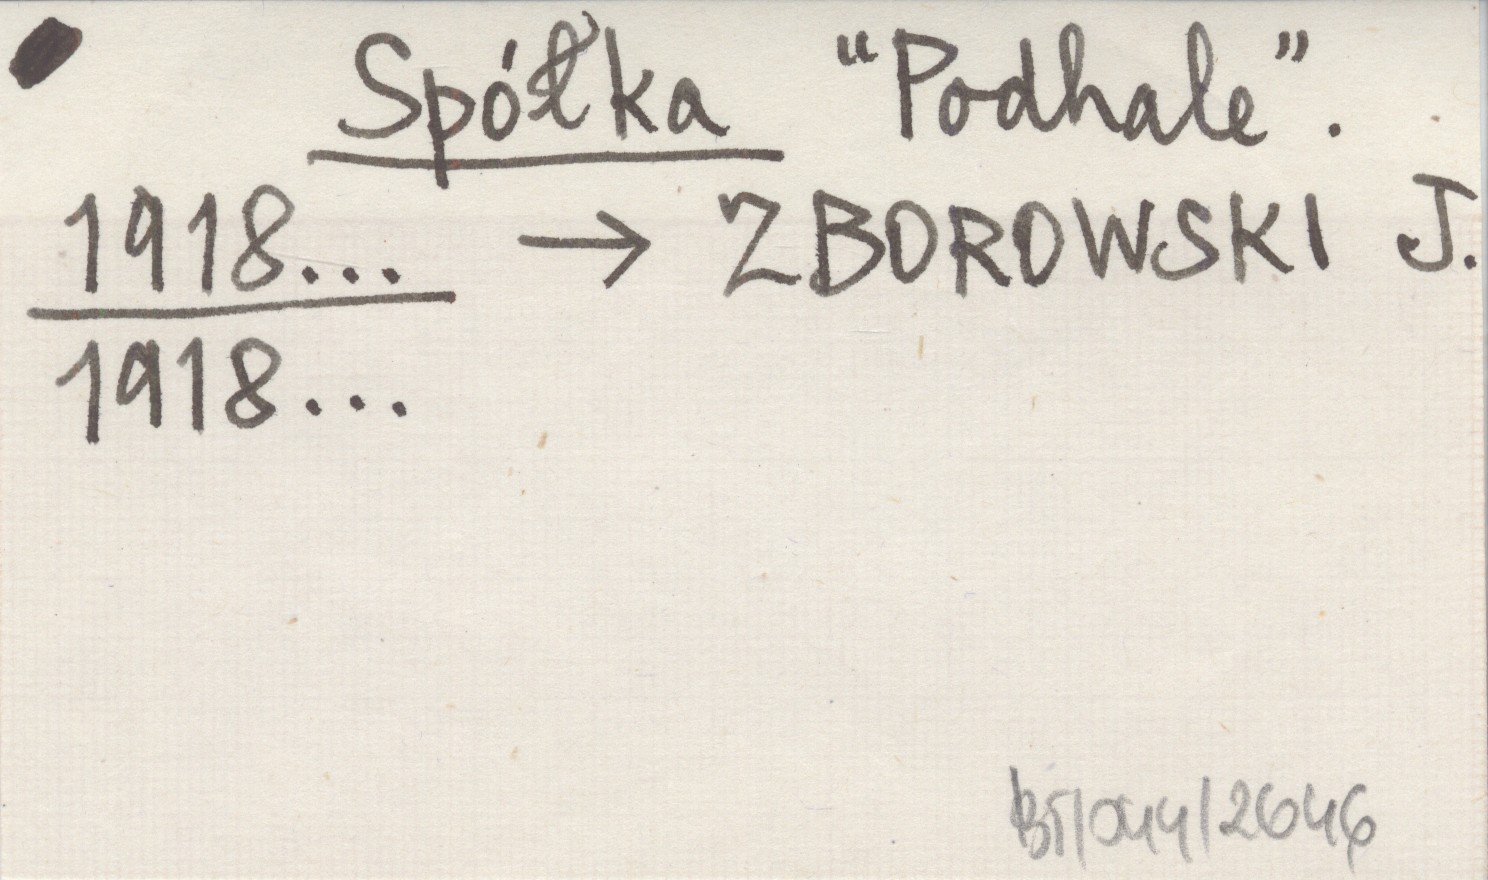 Spółka “Podhale”.
1918... → ZBOROWSKI J.
1918...
BT/044/2646